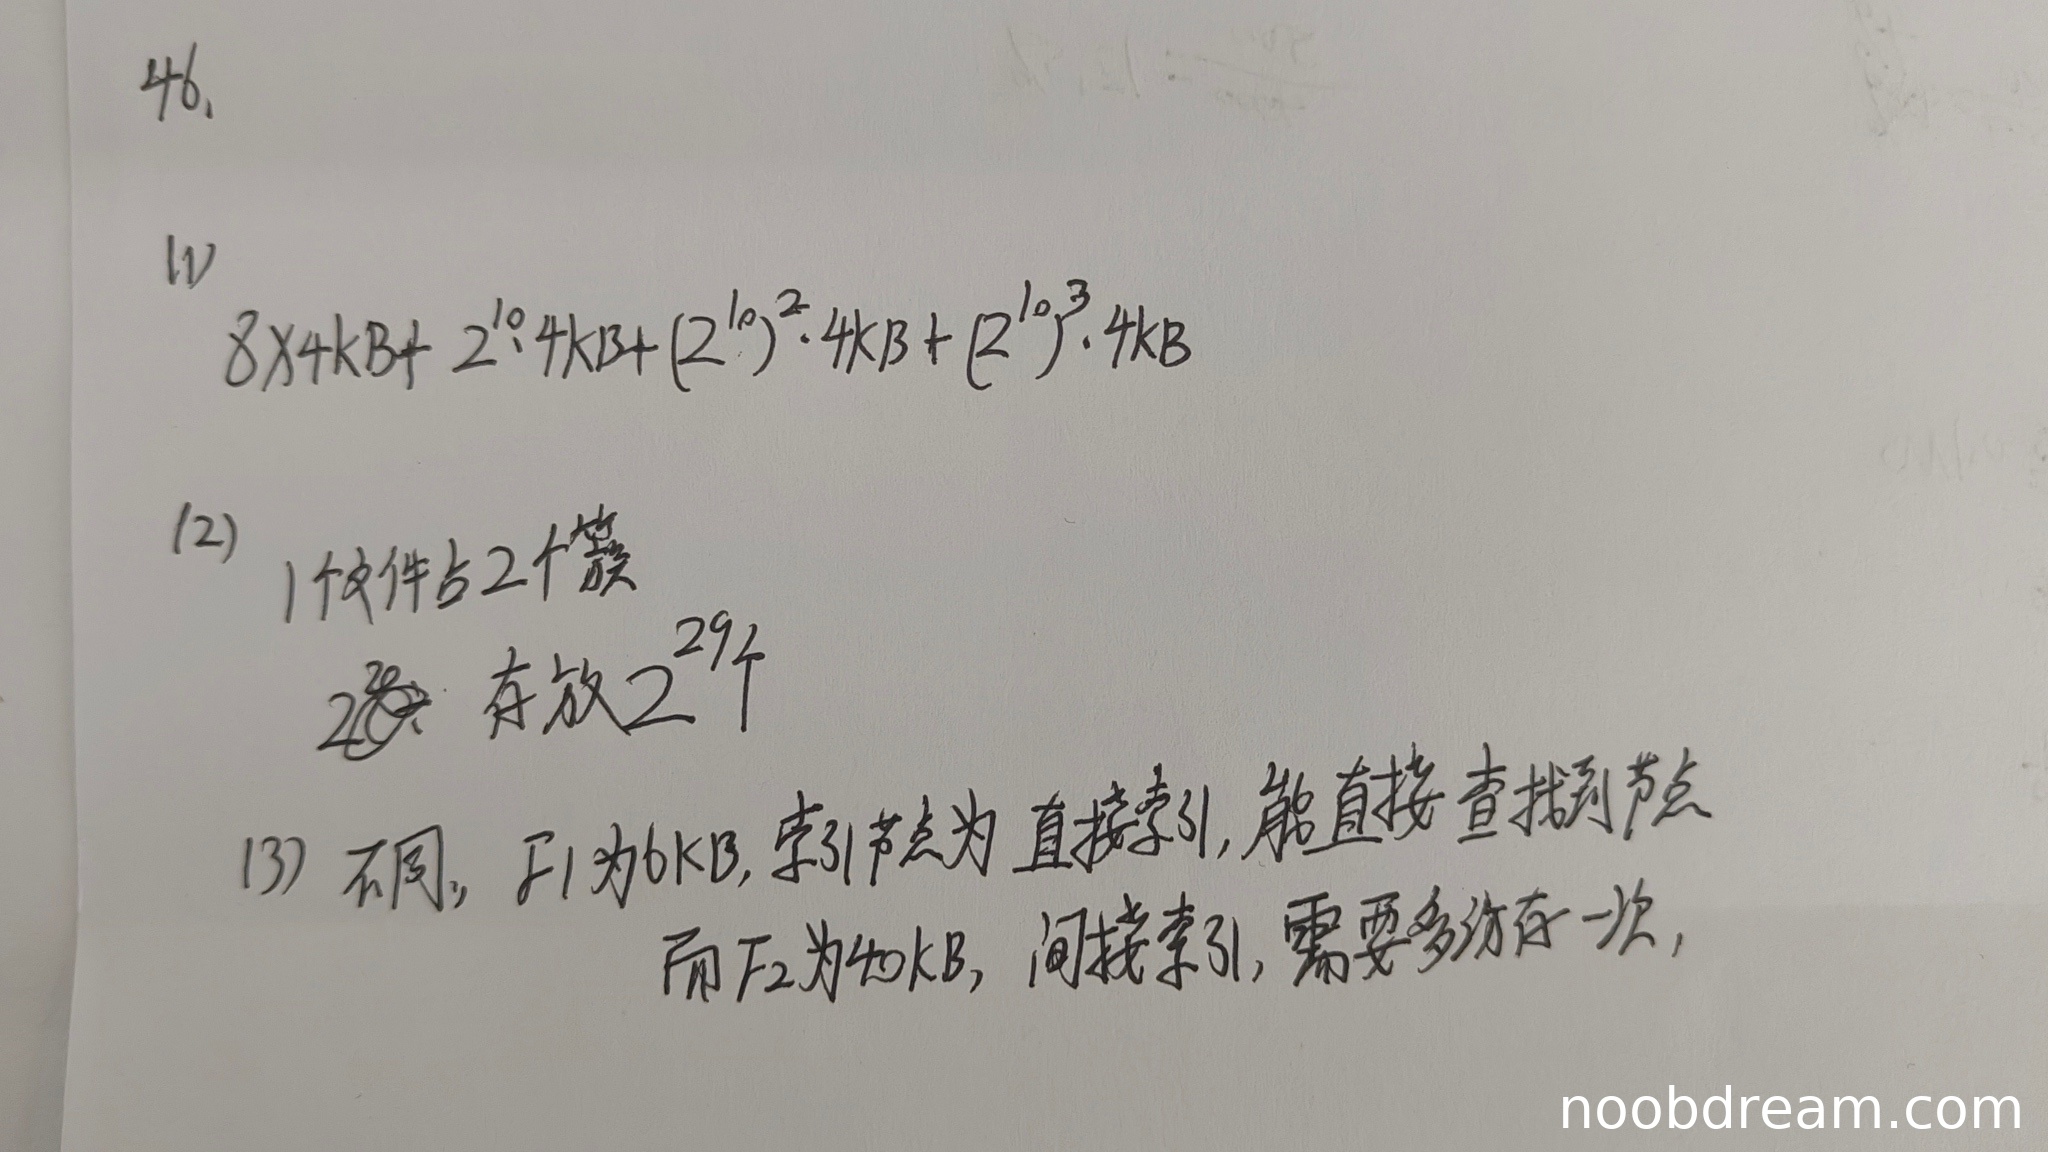 46.
(1)
8×4KB+ 2^10·4KB+(2^10)^2·4KB+(2^10)^3·4KB
(2)
1个文件占2个簇
存放2^29个
(3) 不同, F1为6KB,索引节点为直接索引,能直接查找到节点
而F2为40KB,间接索引,需要多访存一次,
noobdream.com